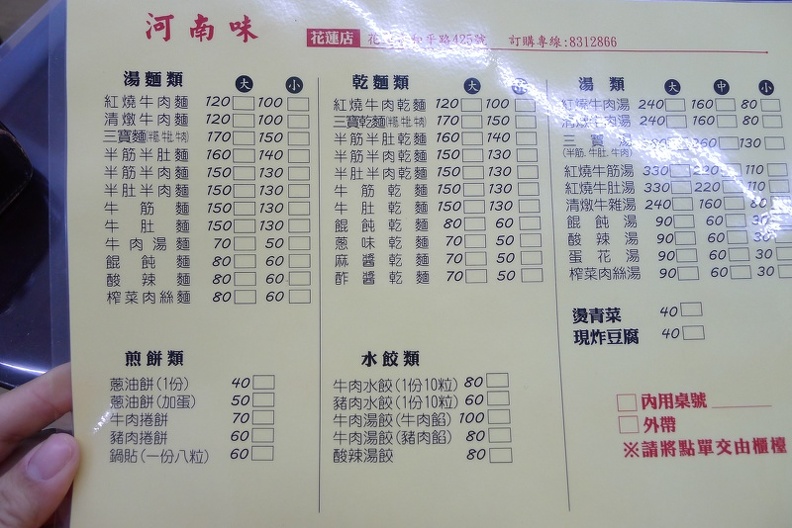 河南味
花蓮店 花 和平路425號 訂購專線:8312866
湯麵類 大 小
紅燒牛肉麵 120 100
清燉牛肉麵 120 100
三寶麵 170 150
半筋半肚麵 160 140
半筋半肉麵 150 130
半肚半肉麵 150 130
牛筋麵 150 130
牛肚麵 150 130
牛肉湯麵 70 50
餛飩麵 80 60
酸辣麵 80 60
榨菜肉絲麵 80 60
煎餅類
蔥油餅(1份) 40
蔥油餅(加蛋) 50
牛肉捲餅 70
豬肉捲餅 60
鍋貼(一份八粒) 60
乾麵類 大
紅燒牛肉乾麵 120 100
三寶乾麵 170 150
半筋半肚乾麵 160 140
半筋半肉乾麵 150 130
半肚半肉乾麵 150 130
牛筋乾麵 150 130
牛肚乾麵 150 130
餛飩乾麵 80 60
蔥味乾麵 70 50
麻醬乾麵 70 50
酢醬乾麵 70 50
水餃類
牛肉水餃(1份10粒) 80
豬肉水餃(1份10粒) 60
牛肉湯餃(牛肉餡) 100
牛肉湯餃(豬肉餡) 80
酸辣湯餃 80
湯類 大 中 小
紅燒牛肉湯 240 160 80
清燉牛肉湯 240 160 80
三寶湯 260 130
(半筋.牛肚.牛肉)
紅燒牛筋湯 330 220 110
紅燒牛肚湯 330 220 110
清燉牛雜湯 240 160 80
餛飩湯 90 60 30
酸辣湯 90 60 30
蛋花湯 90 60 30
榨菜肉絲湯 90 60 30
燙青菜 40
現炸豆腐 40
內用桌號
外帶
※請將點單交由櫃檯